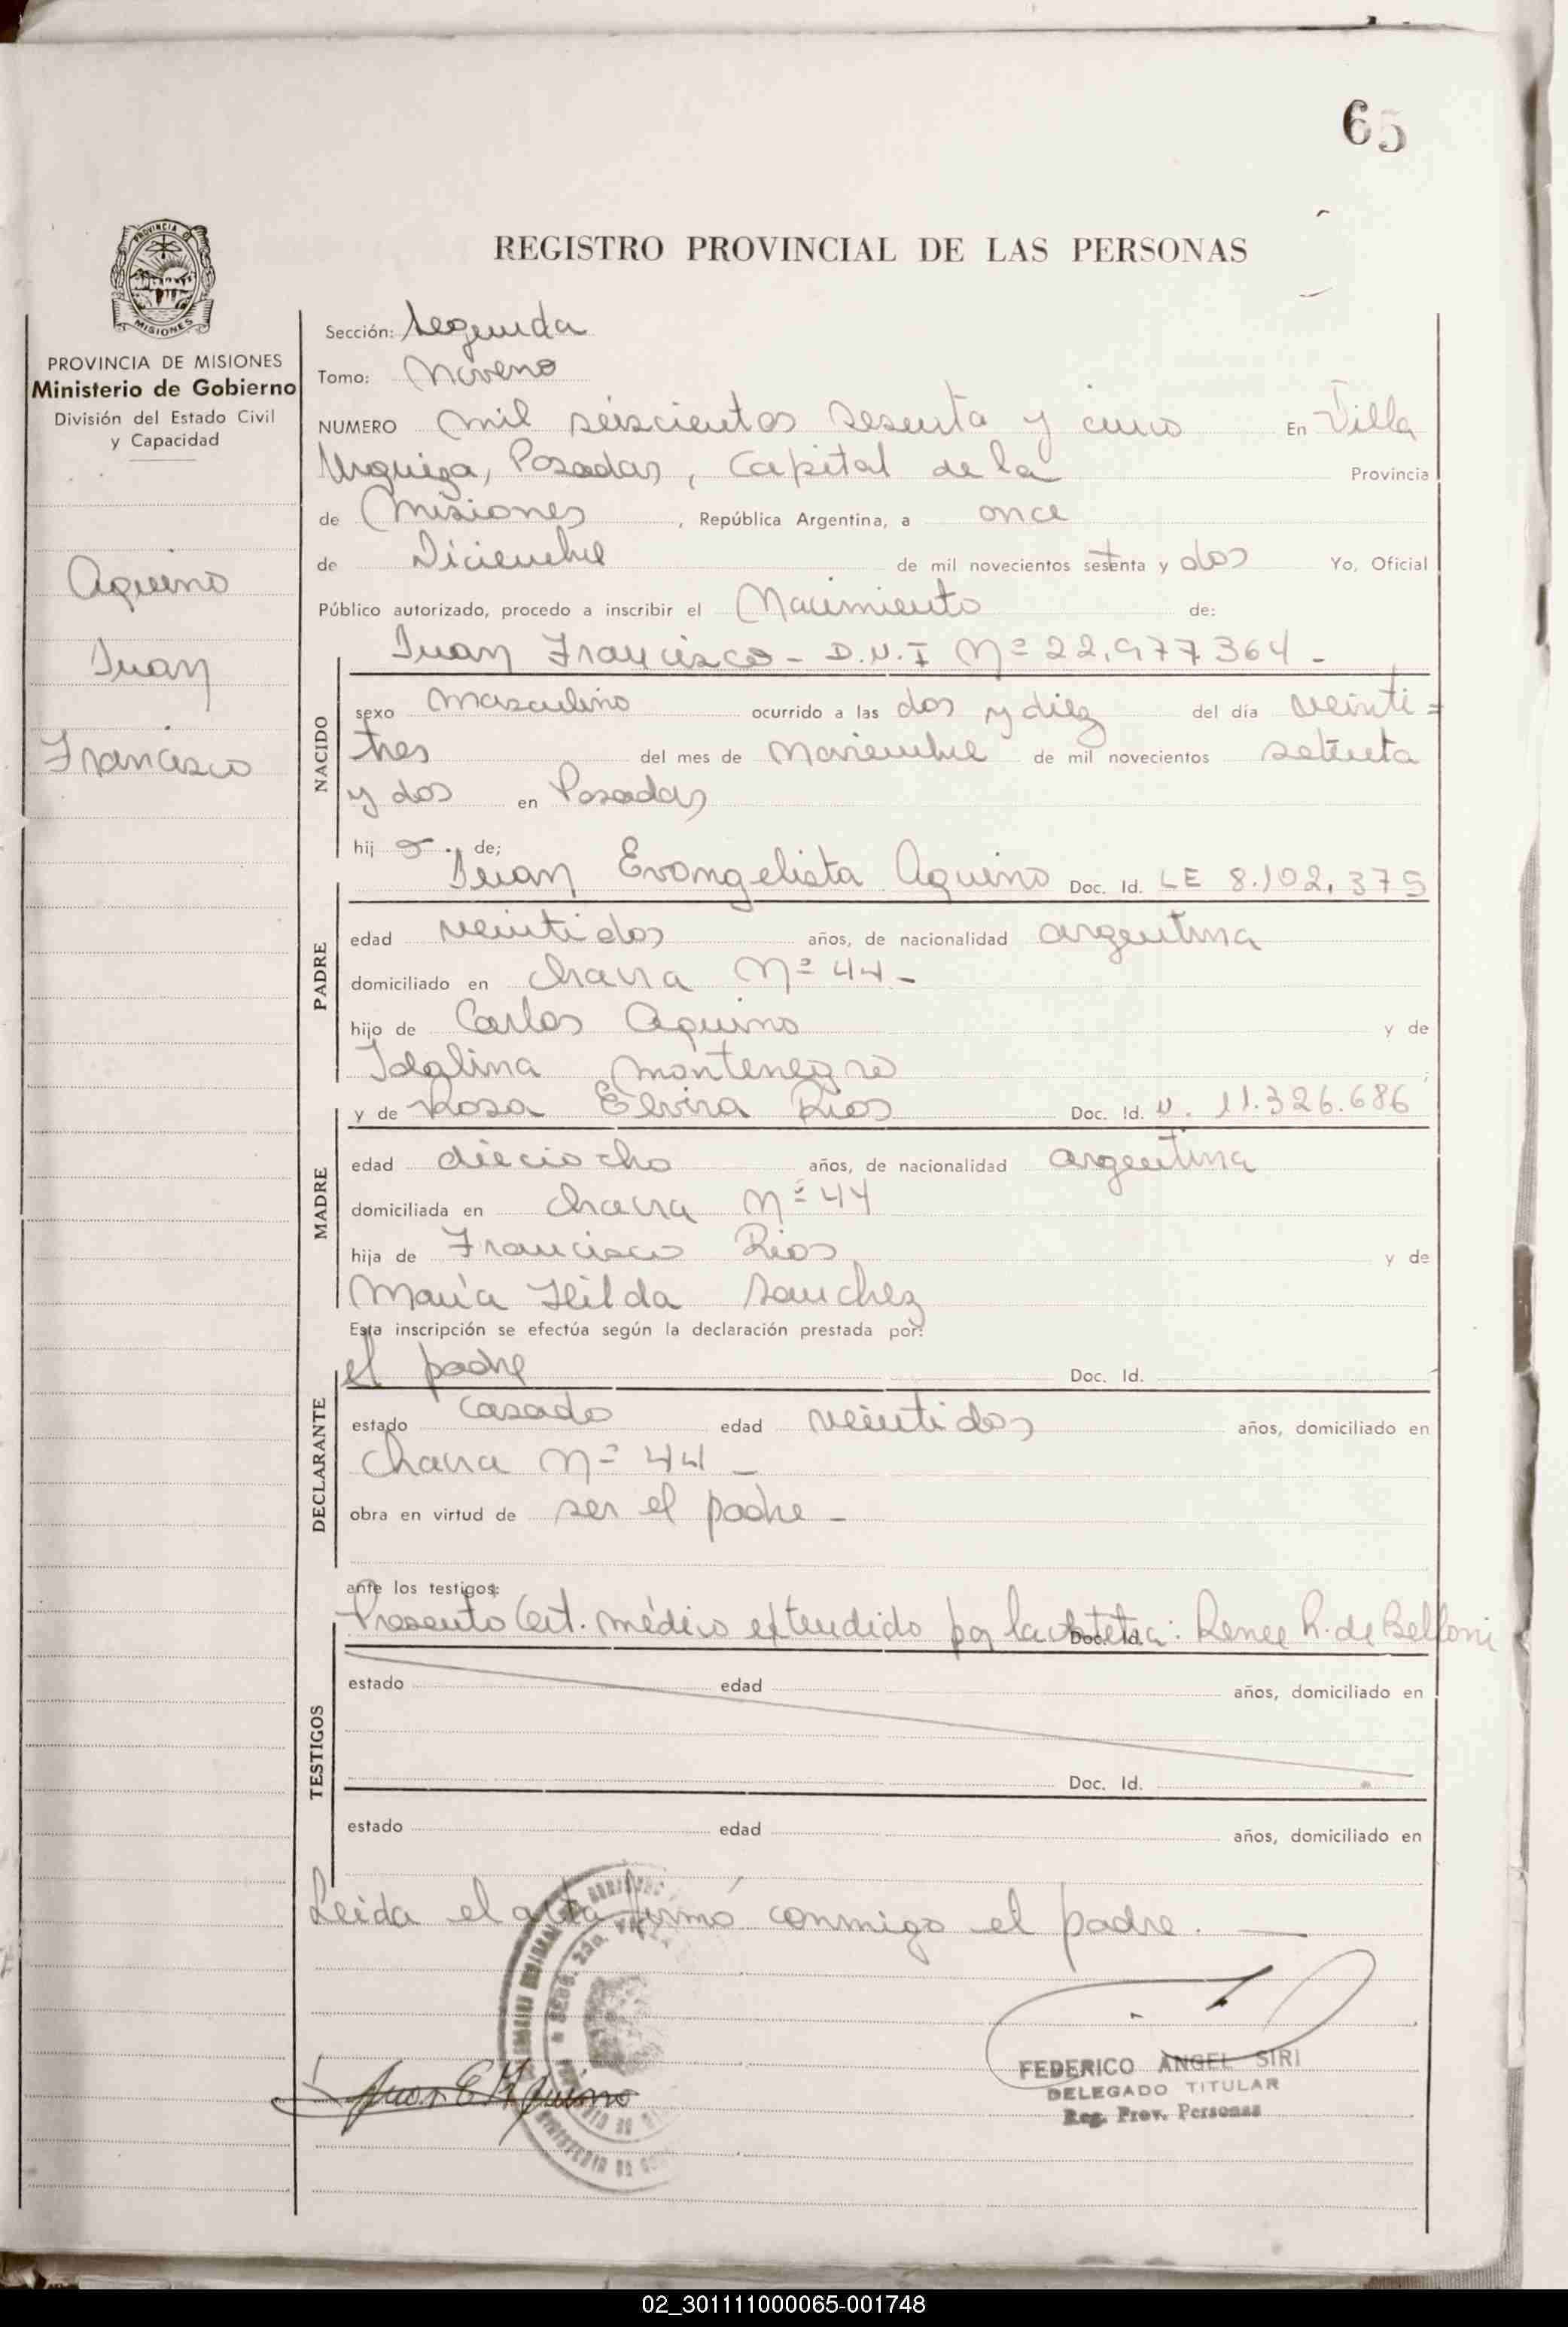 65
REGISTRO PROVINCIAL DE LAS PERSONAS
PROVINCIA DE
MISIONES
PROVINCIA DE MISIONES
Ministerio de Gobierno
División del Estado Civil
y Capacidad
Aquino
Juan
Francisco
Sección: Segunda
Tomo: Noveno
NUMERO mil seiscientos sesenta y cinco En Villa
Urquiza, Posadas, Capital de la Provincia
de Misiones, República Argentina, a once
de Diciembre de mil novecientos sesenta y dos Yo, Oficial
Público autorizado, procedo a inscribir el Nacimiento de:
Juan Francisco - D.N.I Nº 22.977364 -
NACIDO
sexo masculino ocurrido a las dos y diez del día veinti=
tres del mes de Noviembre de mil novecientos setenta
y dos en Posadas
hijo de;
PADRE
Juan Evangelista Aquino Doc. Id. LE 8.102.375
edad veintidos años, de nacionalidad argentina
domiciliado en chacra Nº 44 -
hijo de Carlos Aquino y de
Idalina Montenegro
MADRE
y de Rosa Elvira Rios Doc. Id. N. 11.326.686
edad dieciocho años, de nacionalidad argentina
domiciliada en chacra Nº 44
hija de Francisco Rios y de
María Hilda Sanchez
Esta inscripción se efectúa según la declaración prestada por:
DECLARANTE
el padre Doc. Id.
estado casado edad veintidos años, domiciliado en
chacra Nº 44 -
obra en virtud de ser el padre -
ante los testigos:
TESTIGOS
Presento Cert. médico extendido por la obstetra: Renee R. de Belloni
Doc. Id.
estado edad años, domiciliado en
Doc. Id.
estado edad años, domiciliado en
Leida el acta firmó conmigo el padre.
Juan E Aquino
FEDERICO ANGEL SIRI
DELEGADO TITULAR
Reg. Prov. Personas
02_301111000065-001748